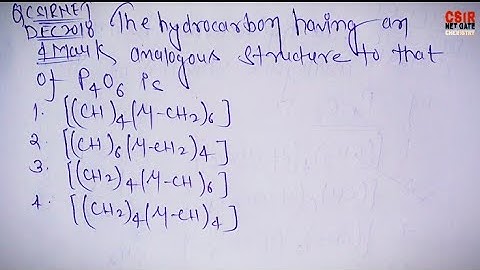 Q CSIRNET The hydrocarbon having an
DEC2018
4 Mark analogous structure to that
of P4O6 is
1. [(CH)4(μ-CH2)6]
2. [(CH)6(μ-CH2)4]
3. [(CH2)4(μ-CH)6]
4. [(CH2)4(μ-CH)4]
CSIR
NET GATE
CHEMISTRY